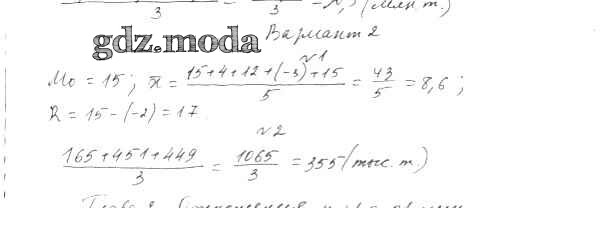 3
gdz.moda Вариант 2
№1
Mo = 15; x̄ = (15+4+12+(-3)+15)/5 = 43/5 = 8,6;
R = 15-(-2) = 17.
№2
(165+451+449)/3 = 1065/3 = 355 (тыс. т.)